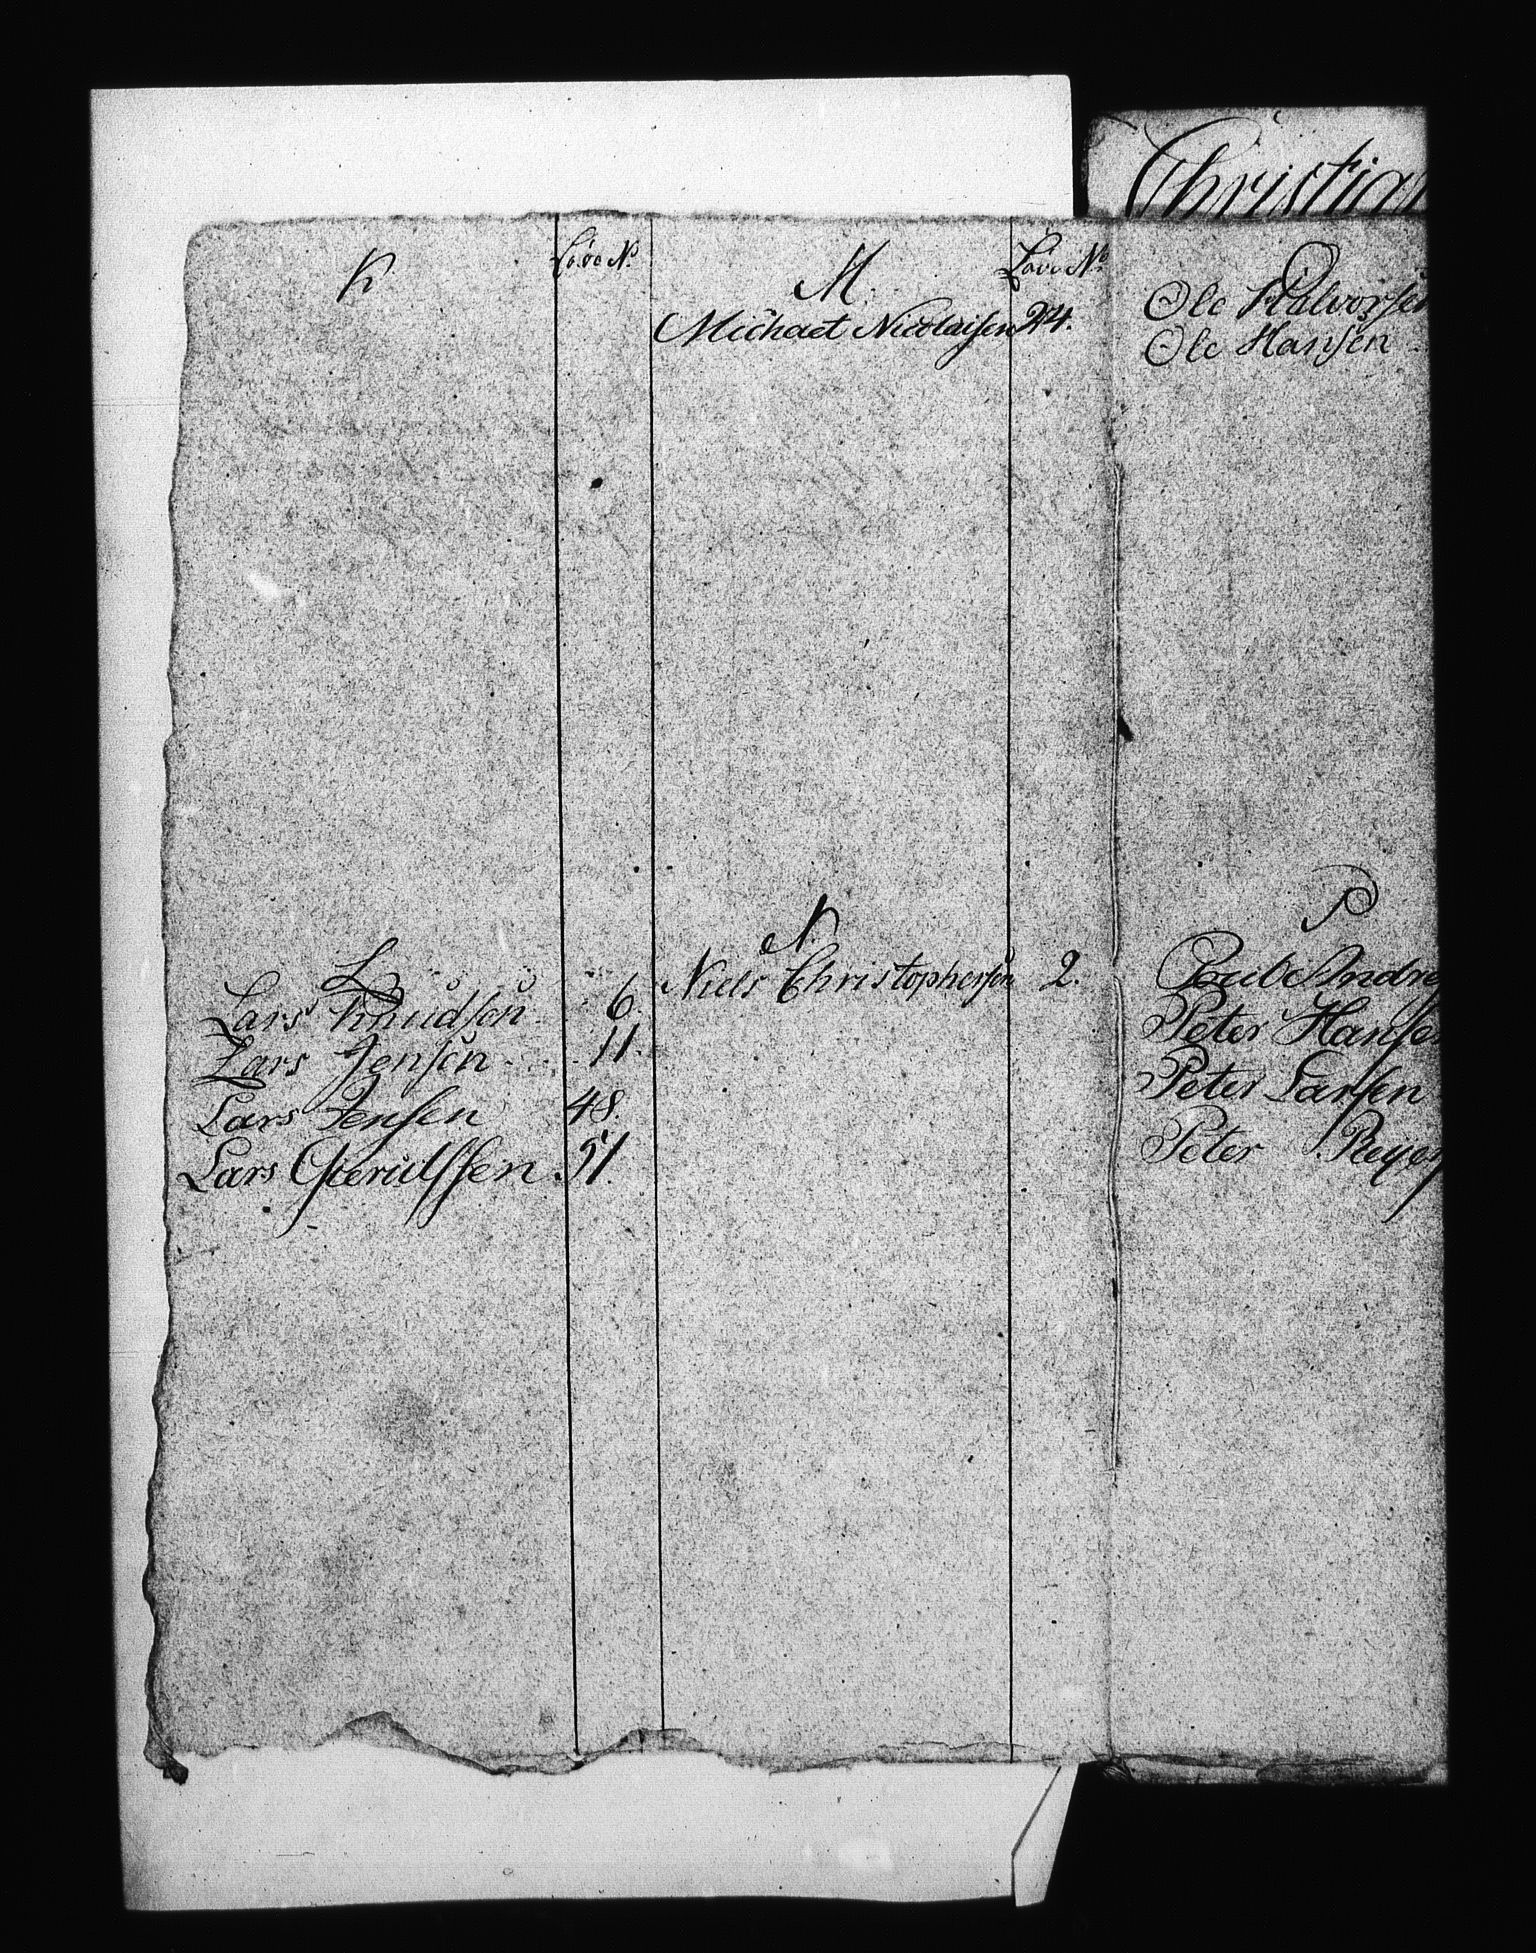 Christian
K
Løve No
M.
Løve No
Michael Nicolaisen 24.
O
Ole Halvorsen
Ole Hansen
N.
Niels Christophersen 2.
L
Lars Knudsen 6.
Lars Jensen 11.
Lars Jensen 48.
Lars 57.
P
Poul Andre
Peter Hanse
Peter Larsen
Peter